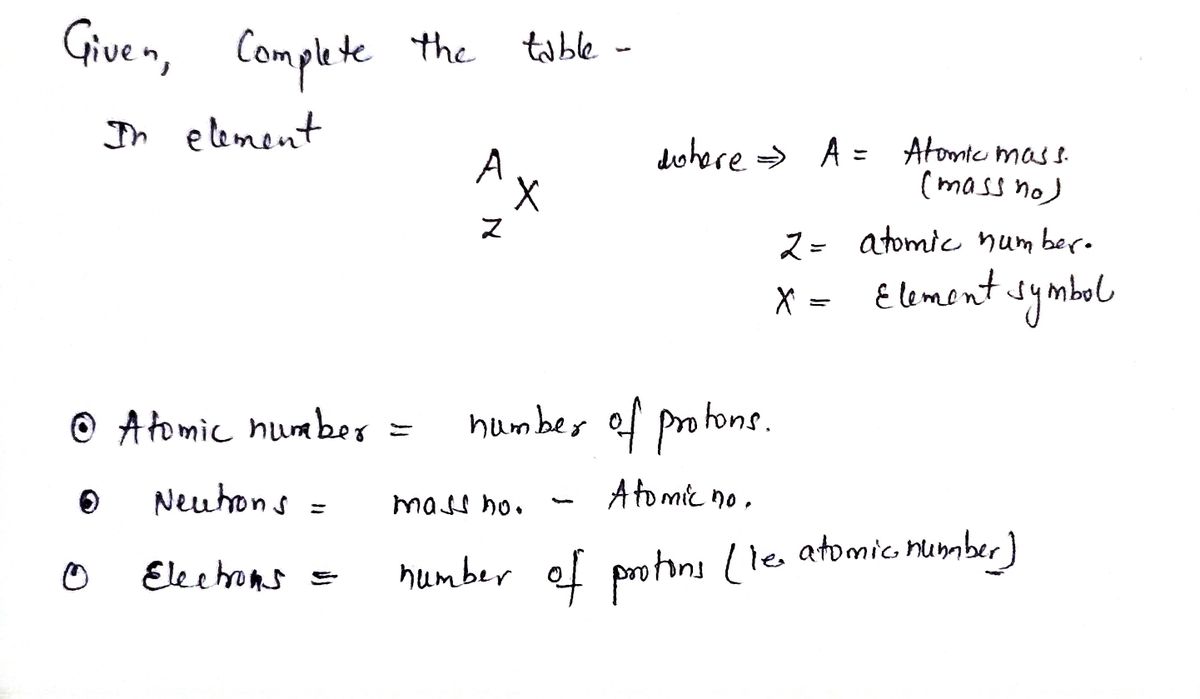 Given, Complete the table -
In element
A
X
Z
where ⇒ A = Atomic mass.
(mass no)
Z = atomic number.
X = Element symbol
⊙ Atomic number = number of protons.
⊙ Neutrons = mass no. - Atomic no.
⊙ Electrons = number of protons (ie. atomic number)